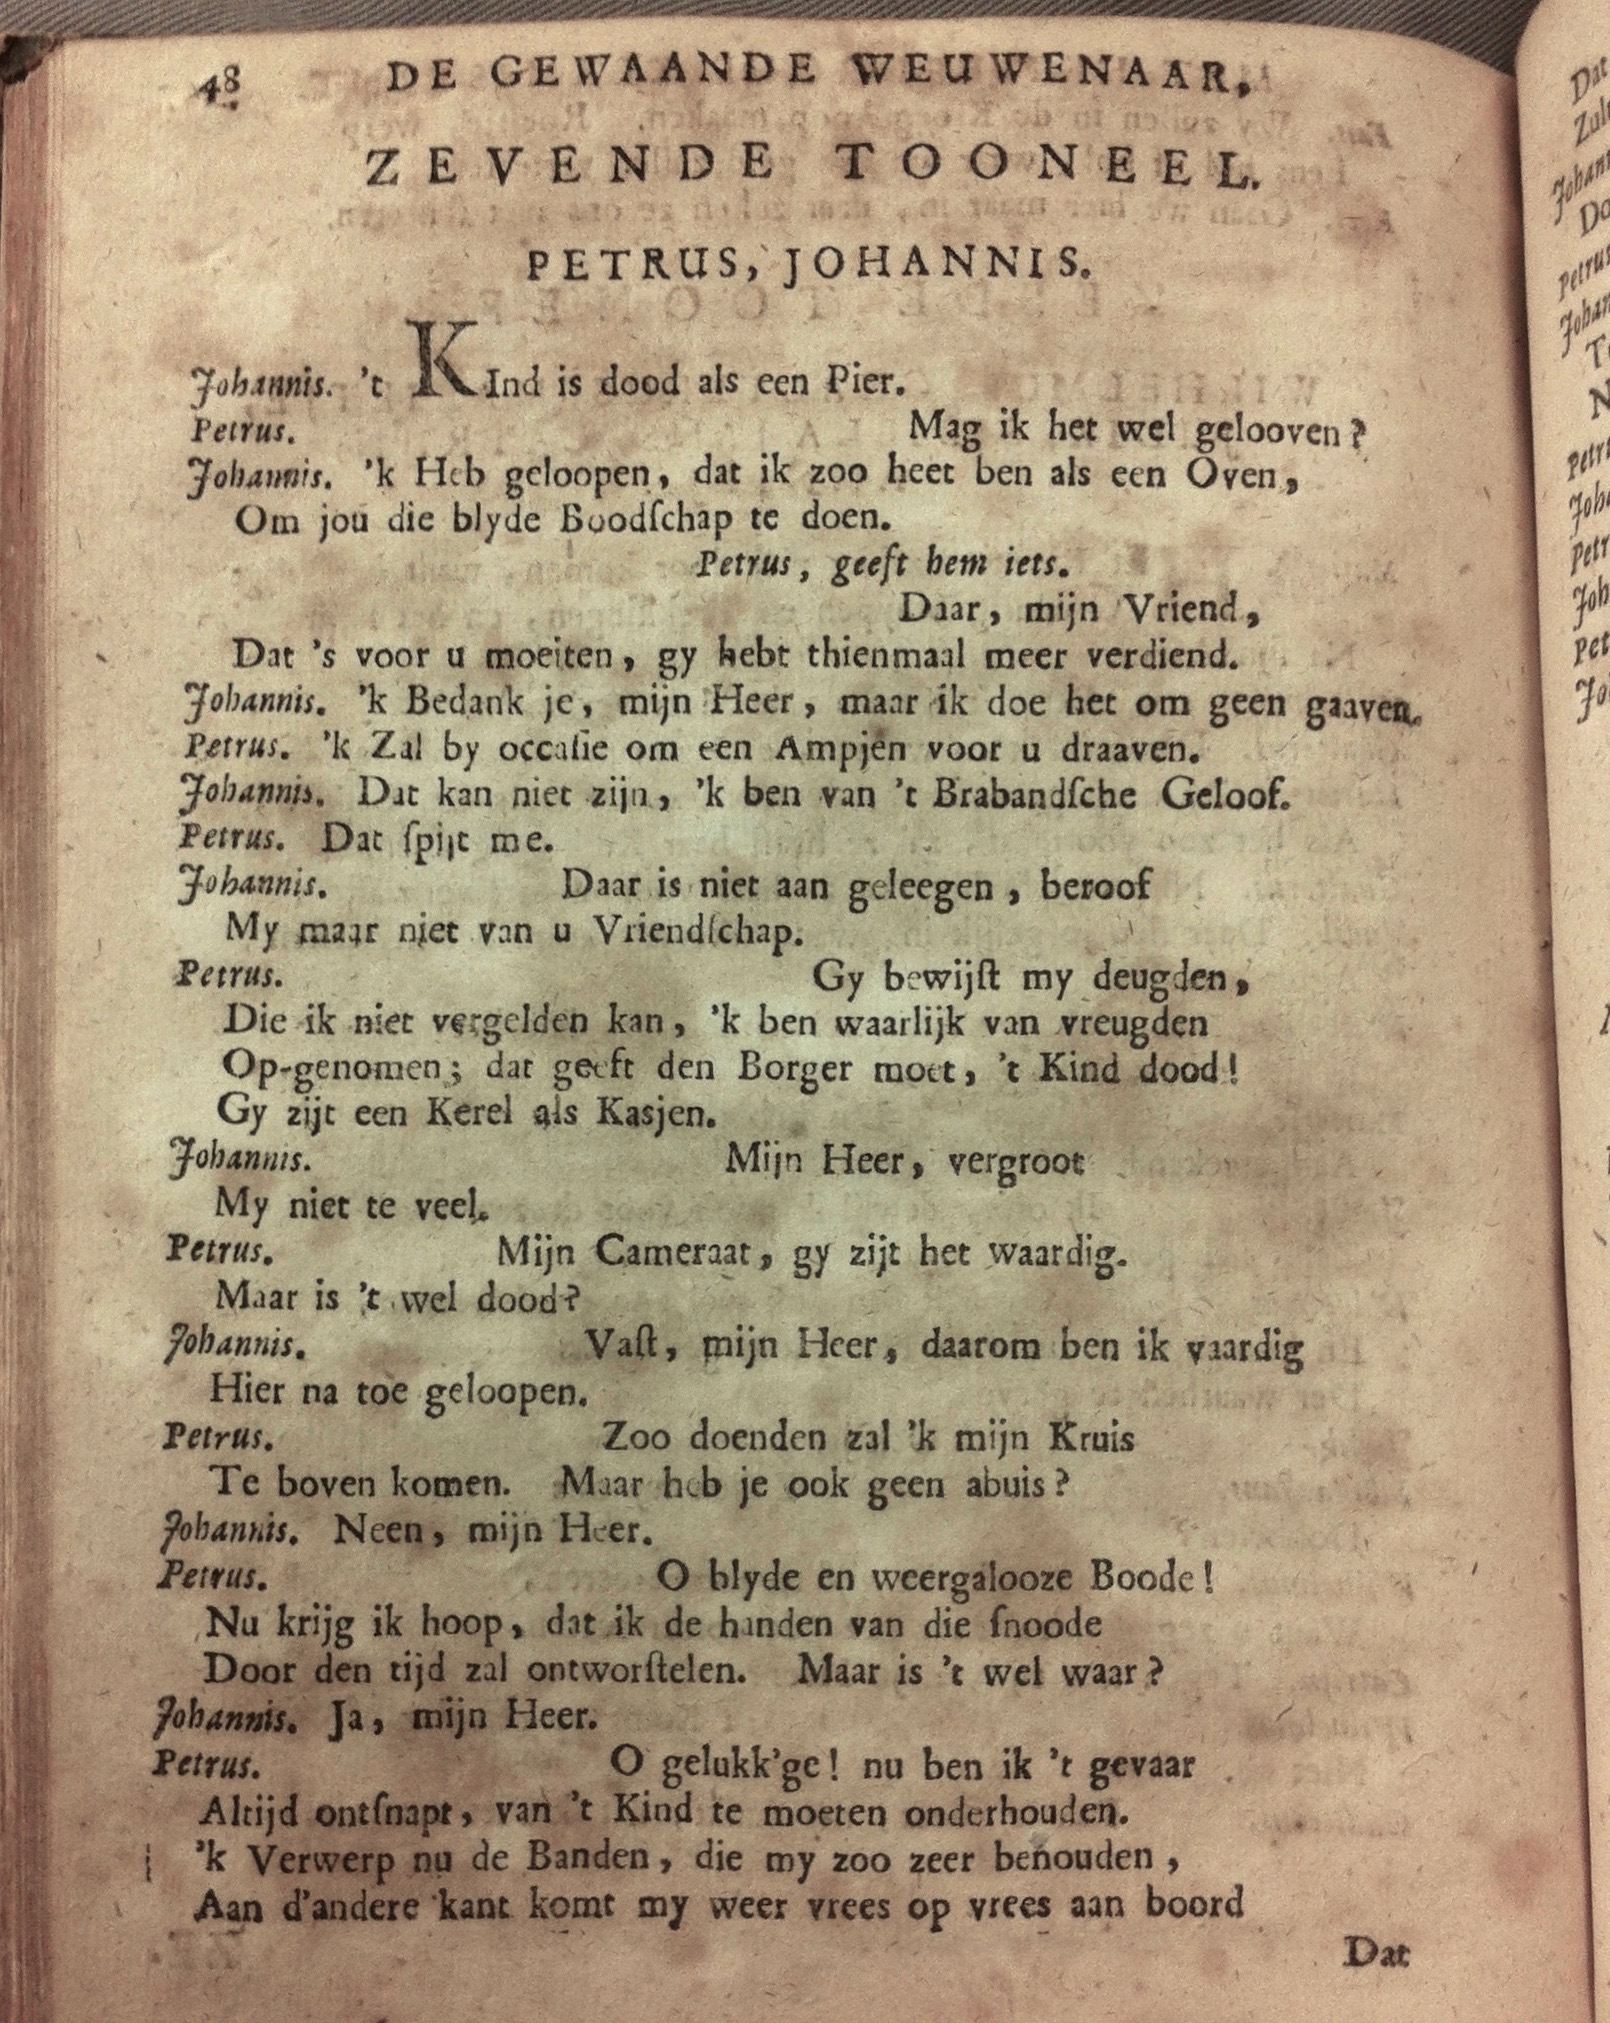 48 DE GEWAANDE WEUWENAAR,
ZEVENDE TOONEEL.
PETRUS, JOHANNIS.
Johannis. 't KInd is dood als een Pier.
Petrus. Mag ik het wel gelooven?
Johannis. 'k Heb geloopen, dat ik zoo heet ben als een Oven,
Om jou die blyde Boodſchap te doen.
Petrus, geeft hem iets.
Daar, mijn Vriend,
Dat 's voor u moeiten, gy hebt thienmaal meer verdiend.
Johannis. 'k Bedank je, mijn Heer, maar ik doe het om geen gaaven.
Petrus. 'k Zal by occaſie om een Ampjen voor u draaven.
Johannis. Dat kan niet zijn, 'k ben van 't Brabandſche Geloof.
Petrus. Dat ſpijt me.
Johannis. Daar is niet aan geleegen, beroof
My maar niet van u Vriendſchap.
Petrus. Gy bewijſt my deugden,
Die ik niet vergelden kan, 'k ben waarlijk van vreugden
Op-genomen; dat geeft den Borger moet, 't Kind dood!
Gy zijt een Kerel als Kasjen.
Johannis. Mijn Heer, vergroot
My niet te veel.
Petrus. Mijn Cameraat, gy zijt het waardig.
Maar is 't wel dood?
Johannis. Vaſt, mijn Heer, daarom ben ik vaardig
Hier na toe geloopen.
Petrus. Zoo doenden zal 'k mijn Kruis
Te boven komen. Maar heb je ook geen abuis?
Johannis. Neen, mijn Heer.
Petrus. O blyde en weergalooze Boode!
Nu krijg ik hoop, dat ik de handen van die ſnoode
Door den tijd zal ontworſtelen. Maar is 't wel waar?
Johannis. Ja, mijn Heer.
Petrus. O gelukk'ge! nu ben ik 't gevaar
Altijd ontſnapt, van 't Kind te moeten onderhouden.
'k Verwerp nu de Banden, die my zoo zeer benouden,
Aan d'andere kant komt my weer vrees op vrees aan boord
Dat